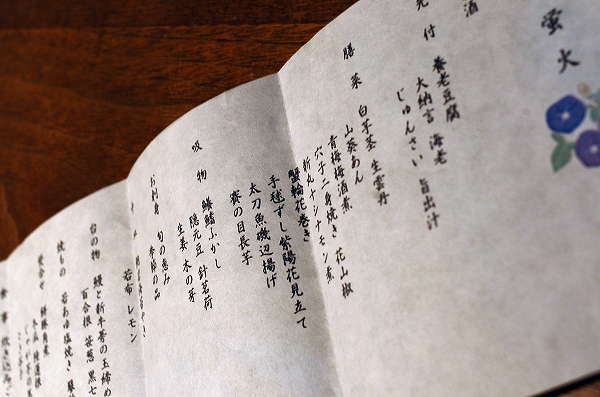 蛍火
酒
先付 養老豆腐
大納言 海老
じゅんさい 旨出汁
膳菜 白芋茎 生雲丹
山葵あん
青梅梅酒煮 花山椒
穴子二身焼き
新丸十シナモン煮
蟹輪花巻き
手毬ずし紫陽花見立て
太刀魚磯辺揚げ
賽の目長芋
吸物 鱶鰭ふかし
隠元豆 針茗荷
生姜 木の芽
お刺身 旬の恵み
季節の品
若布 レモン
台の物 鰻と新牛蒡の玉締め
百合根 笹葱 黒七
焼もの 若あゆ塩焼き